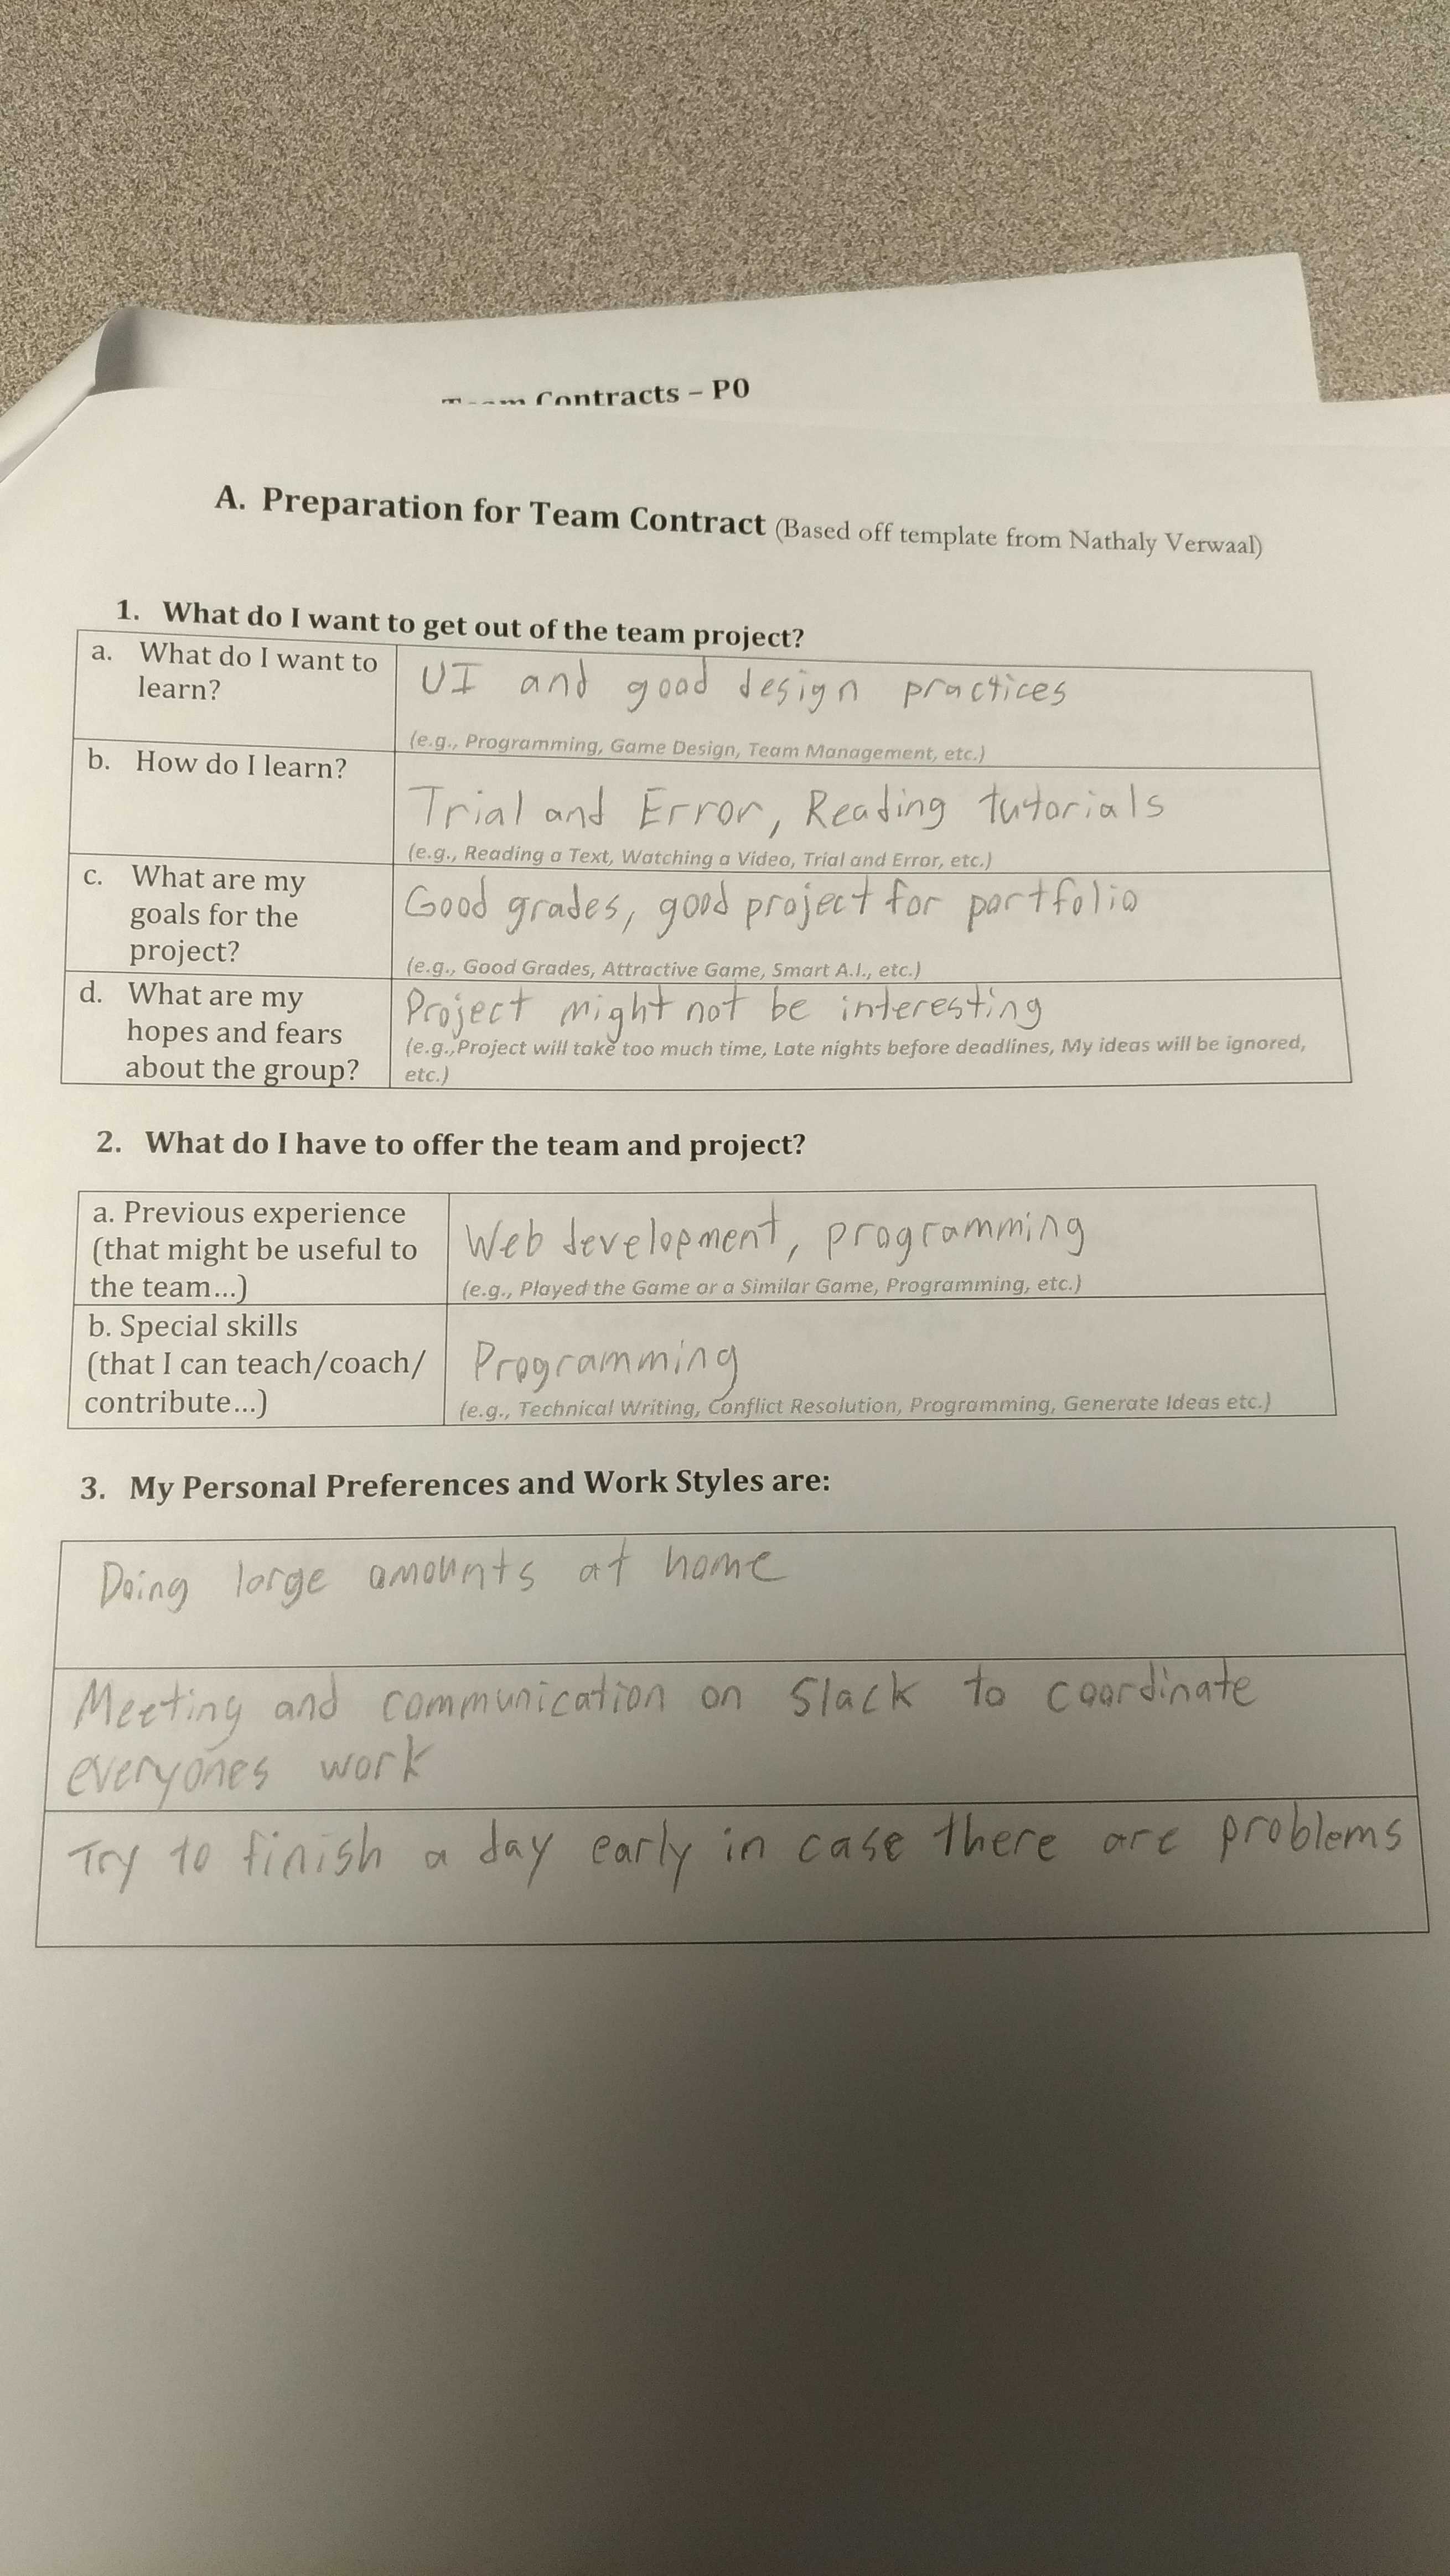 Contracts – P0
A. Preparation for Team Contract (Based off template from Nathaly Verwaal)
1. What do I want to get out of the team project?
a. What do I want to
learn?
UI and good design practices
(e.g., Programming, Game Design, Team Management, etc.)
b. How do I learn?
Trial and Error, Reading tutorials
(e.g., Reading a Text, Watching a Video, Trial and Error, etc.)
c. What are my
goals for the
project?
Good grades, good project for portfolio
(e.g., Good Grades, Attractive Game, Smart A.I., etc.)
d. What are my
hopes and fears
about the group?
Project might not be interesting
(e.g.,Project will take too much time, Late nights before deadlines, My ideas will be ignored,
etc.)
2. What do I have to offer the team and project?
a. Previous experience
(that might be useful to
the team...)
Web development, programming
(e.g., Played the Game or a Similar Game, Programming, etc.)
b. Special skills
(that I can teach/coach/
contribute...)
Programming
(e.g., Technical Writing, Conflict Resolution, Programming, Generate Ideas etc.)
3. My Personal Preferences and Work Styles are:
Doing large amounts at home
Meeting and communication on Slack to coordinate
everyones work
Try to finish a day early in case there are problems